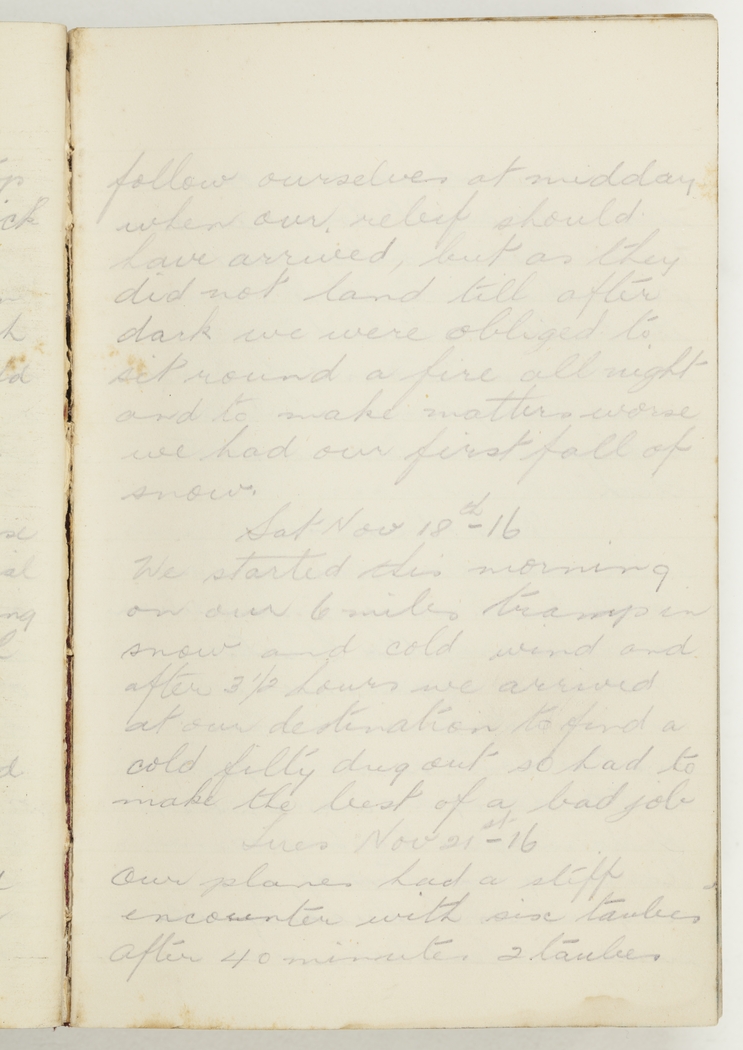 follow ourselves at midday
when our releif should
have arrived, but as they
did not land till after
dark we were obliged to
sit round a fire all night
and to make matters worse
we had our first fall of
snow.
Sat Nov 18th-16
We started this morning
on our 6 miles tramp in
snow and cold wind and
after 3 1/2 hours we arrived
at our destination to find a
cold filty dug out so had to
make the best of a bad job
Tues Nov 21st-16
Our planes had a stiff
encounter with six taubes
After 40 minutes 2 taubes